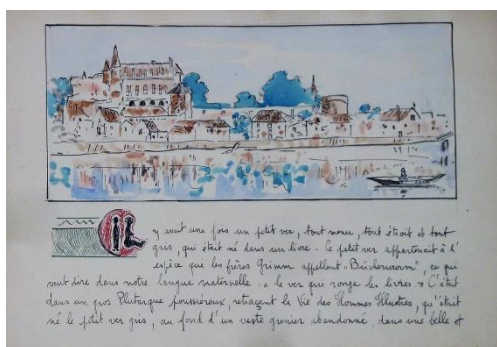 IL y avait une fois un petit ver, tout menu, tout étroit et tout
gris, qui était né dans un livre. Ce petit ver appartenait à l'
espèce que les frères Grimm appellent "Bücherwurm", ce qui
veut dire dans notre langue maternelle : "le ver qui ronge les livres". C'était
dans un gros Plutarque poussiéreux, retraçant la Vie des Hommes Illustres, qu'était
né le petit ver gris, au fond d'un vaste grenier abandonné, dans une belle et